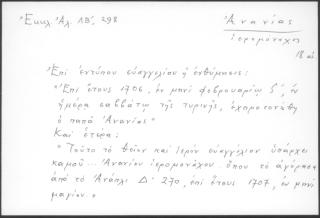 Ἐκκλ. Ἀλ. ΛΒ', 298
Ἀνανίας
ἱερομόναχος
18 αἰ.
Ἐπὶ ἐντύπου εὐαγγελίου ἡ ἐνθύμησις:
"Ἐπὶ ἔτους 1706, ἐν μηνὶ φεβρουαρίῳ ζ', ἐν
ἡμέρᾳ σαββάτῳ τῆς τυρινῆς, ἐχηροτονήθη
ὁ παπὰ Ἀνανίας"
Καὶ ἑτέρα:
"Τοῦτο τὸ θεῖον καὶ ἱερὸν εὐαγγέλιον ὑπάρχει
καμοῦ... Ἀνανίου ἱερομονάχου, ὅπου τὸ ἀγόρασα
ἀπὸ τὸ Ἀνάπλι Δ' 270, ἐπὶ ἔτους 1707, ἐν μηνὶ
μαγίου."